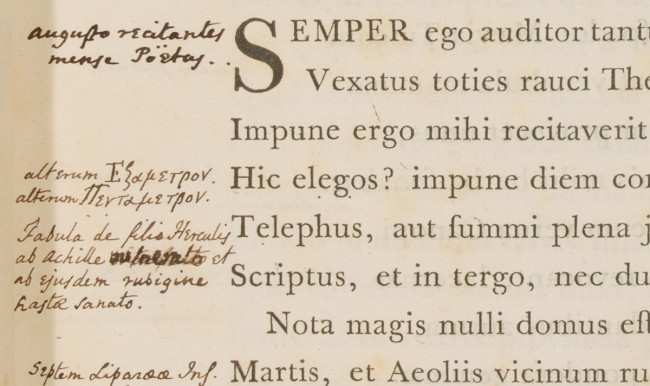 augusto recitantes
mense Poëtas.
SEMPER ego auditor tant
Vexatus toties rauci The
Impune ergo mihi recitaverit
alterum Ἑξαμετρον.
Hic elegos? impune diem co
alterum Πενταμετρον.
Fabula de filio Herculis
Telephus, aut ſummi plena
ab Achille vulnerato et
ab ejusdem rubigine
Scriptus, et in tergo, nec du
hastæ sanato.
Nota magis nulli domus eſt
Septem Liparææ Inſ.
Martis, et Aeoliis vicinum ru